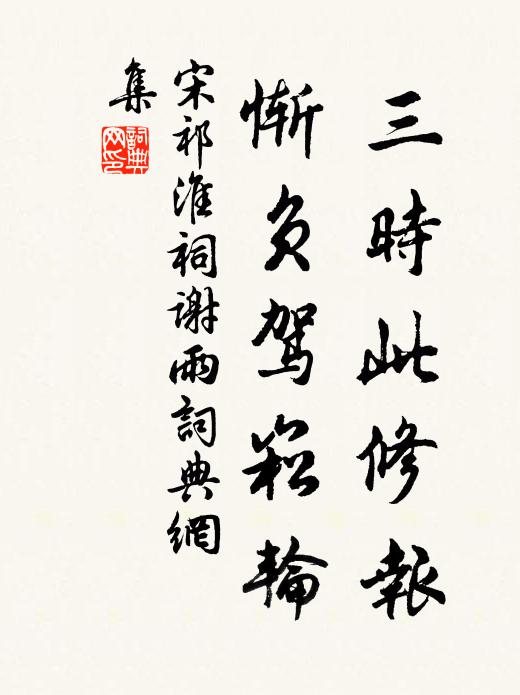 三時此修報
慚負駕輪
宋祁淮祠謝雨詞典網
集
詞典網印